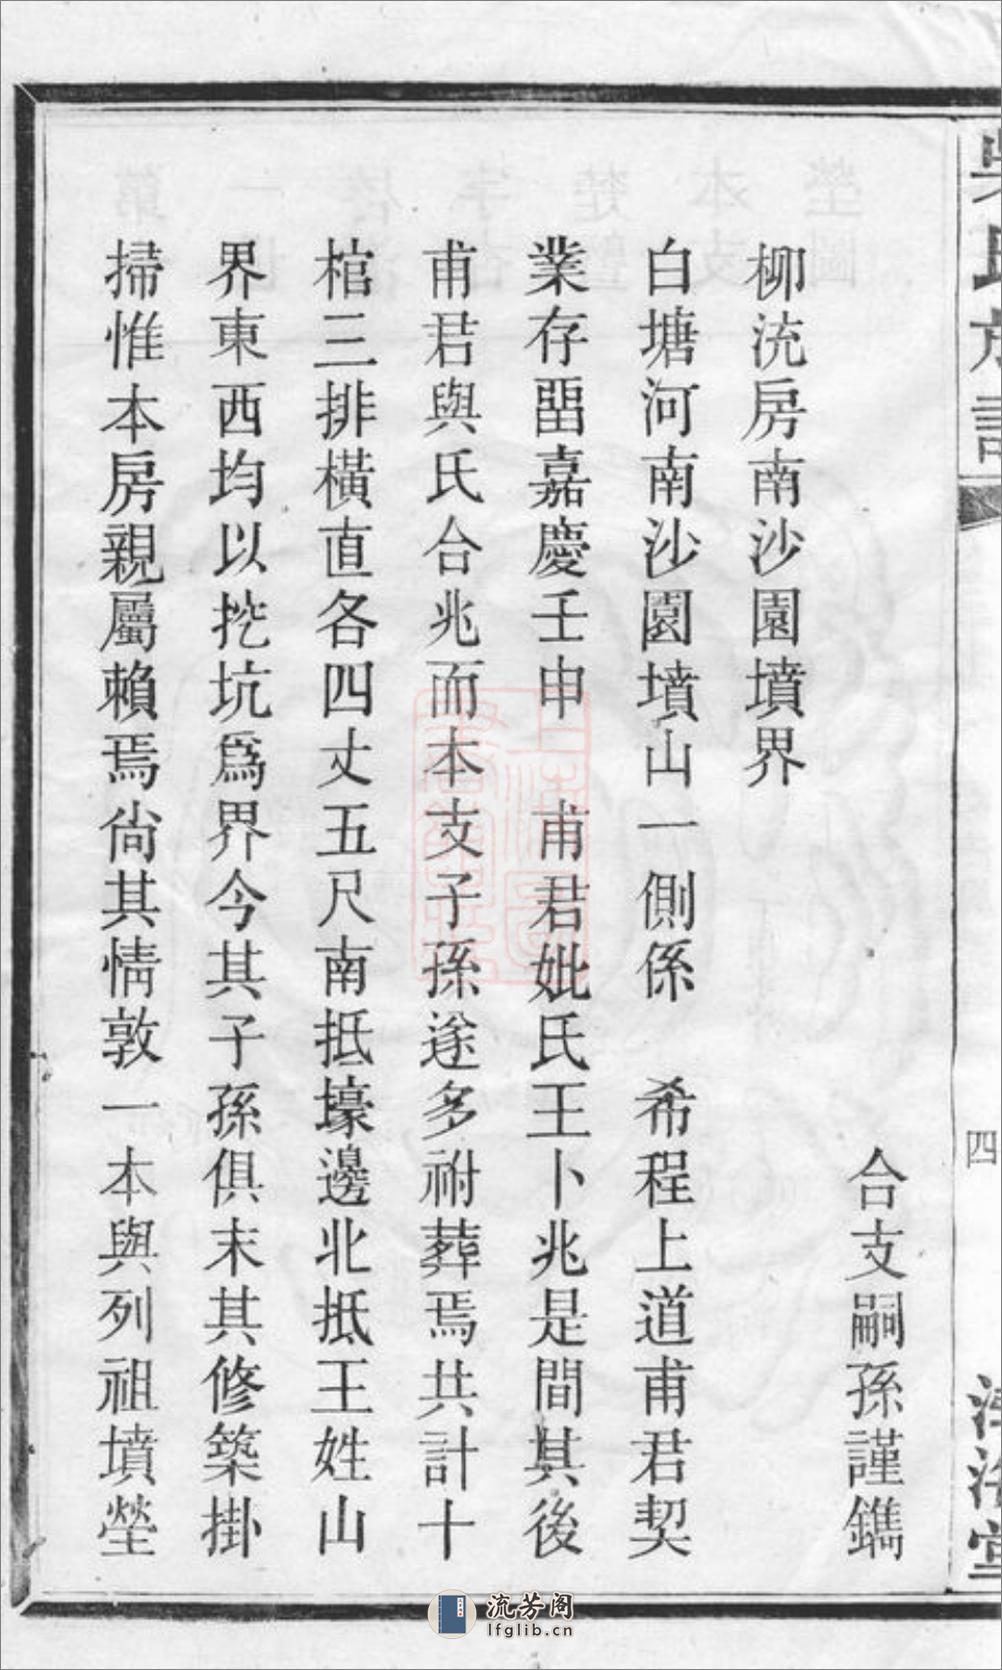 合支嗣孫謹鐫
柳流房南沙園墳界
白塘河南沙園墳山一側係　希程上道甫君契
業存畱嘉慶壬申　甫君妣氏王卜兆是間其後
甫君與氏合兆而本支子孫遂多祔葬焉共計十
棺三排橫直各四丈五尺南抵壕邊北抵王姓山
界東西均以挖坑爲界今其子孫俱末其修築掛
掃惟本房親屬賴焉尙其情敦一本與列祖墳塋
四
流芳阁
lfglib.cn